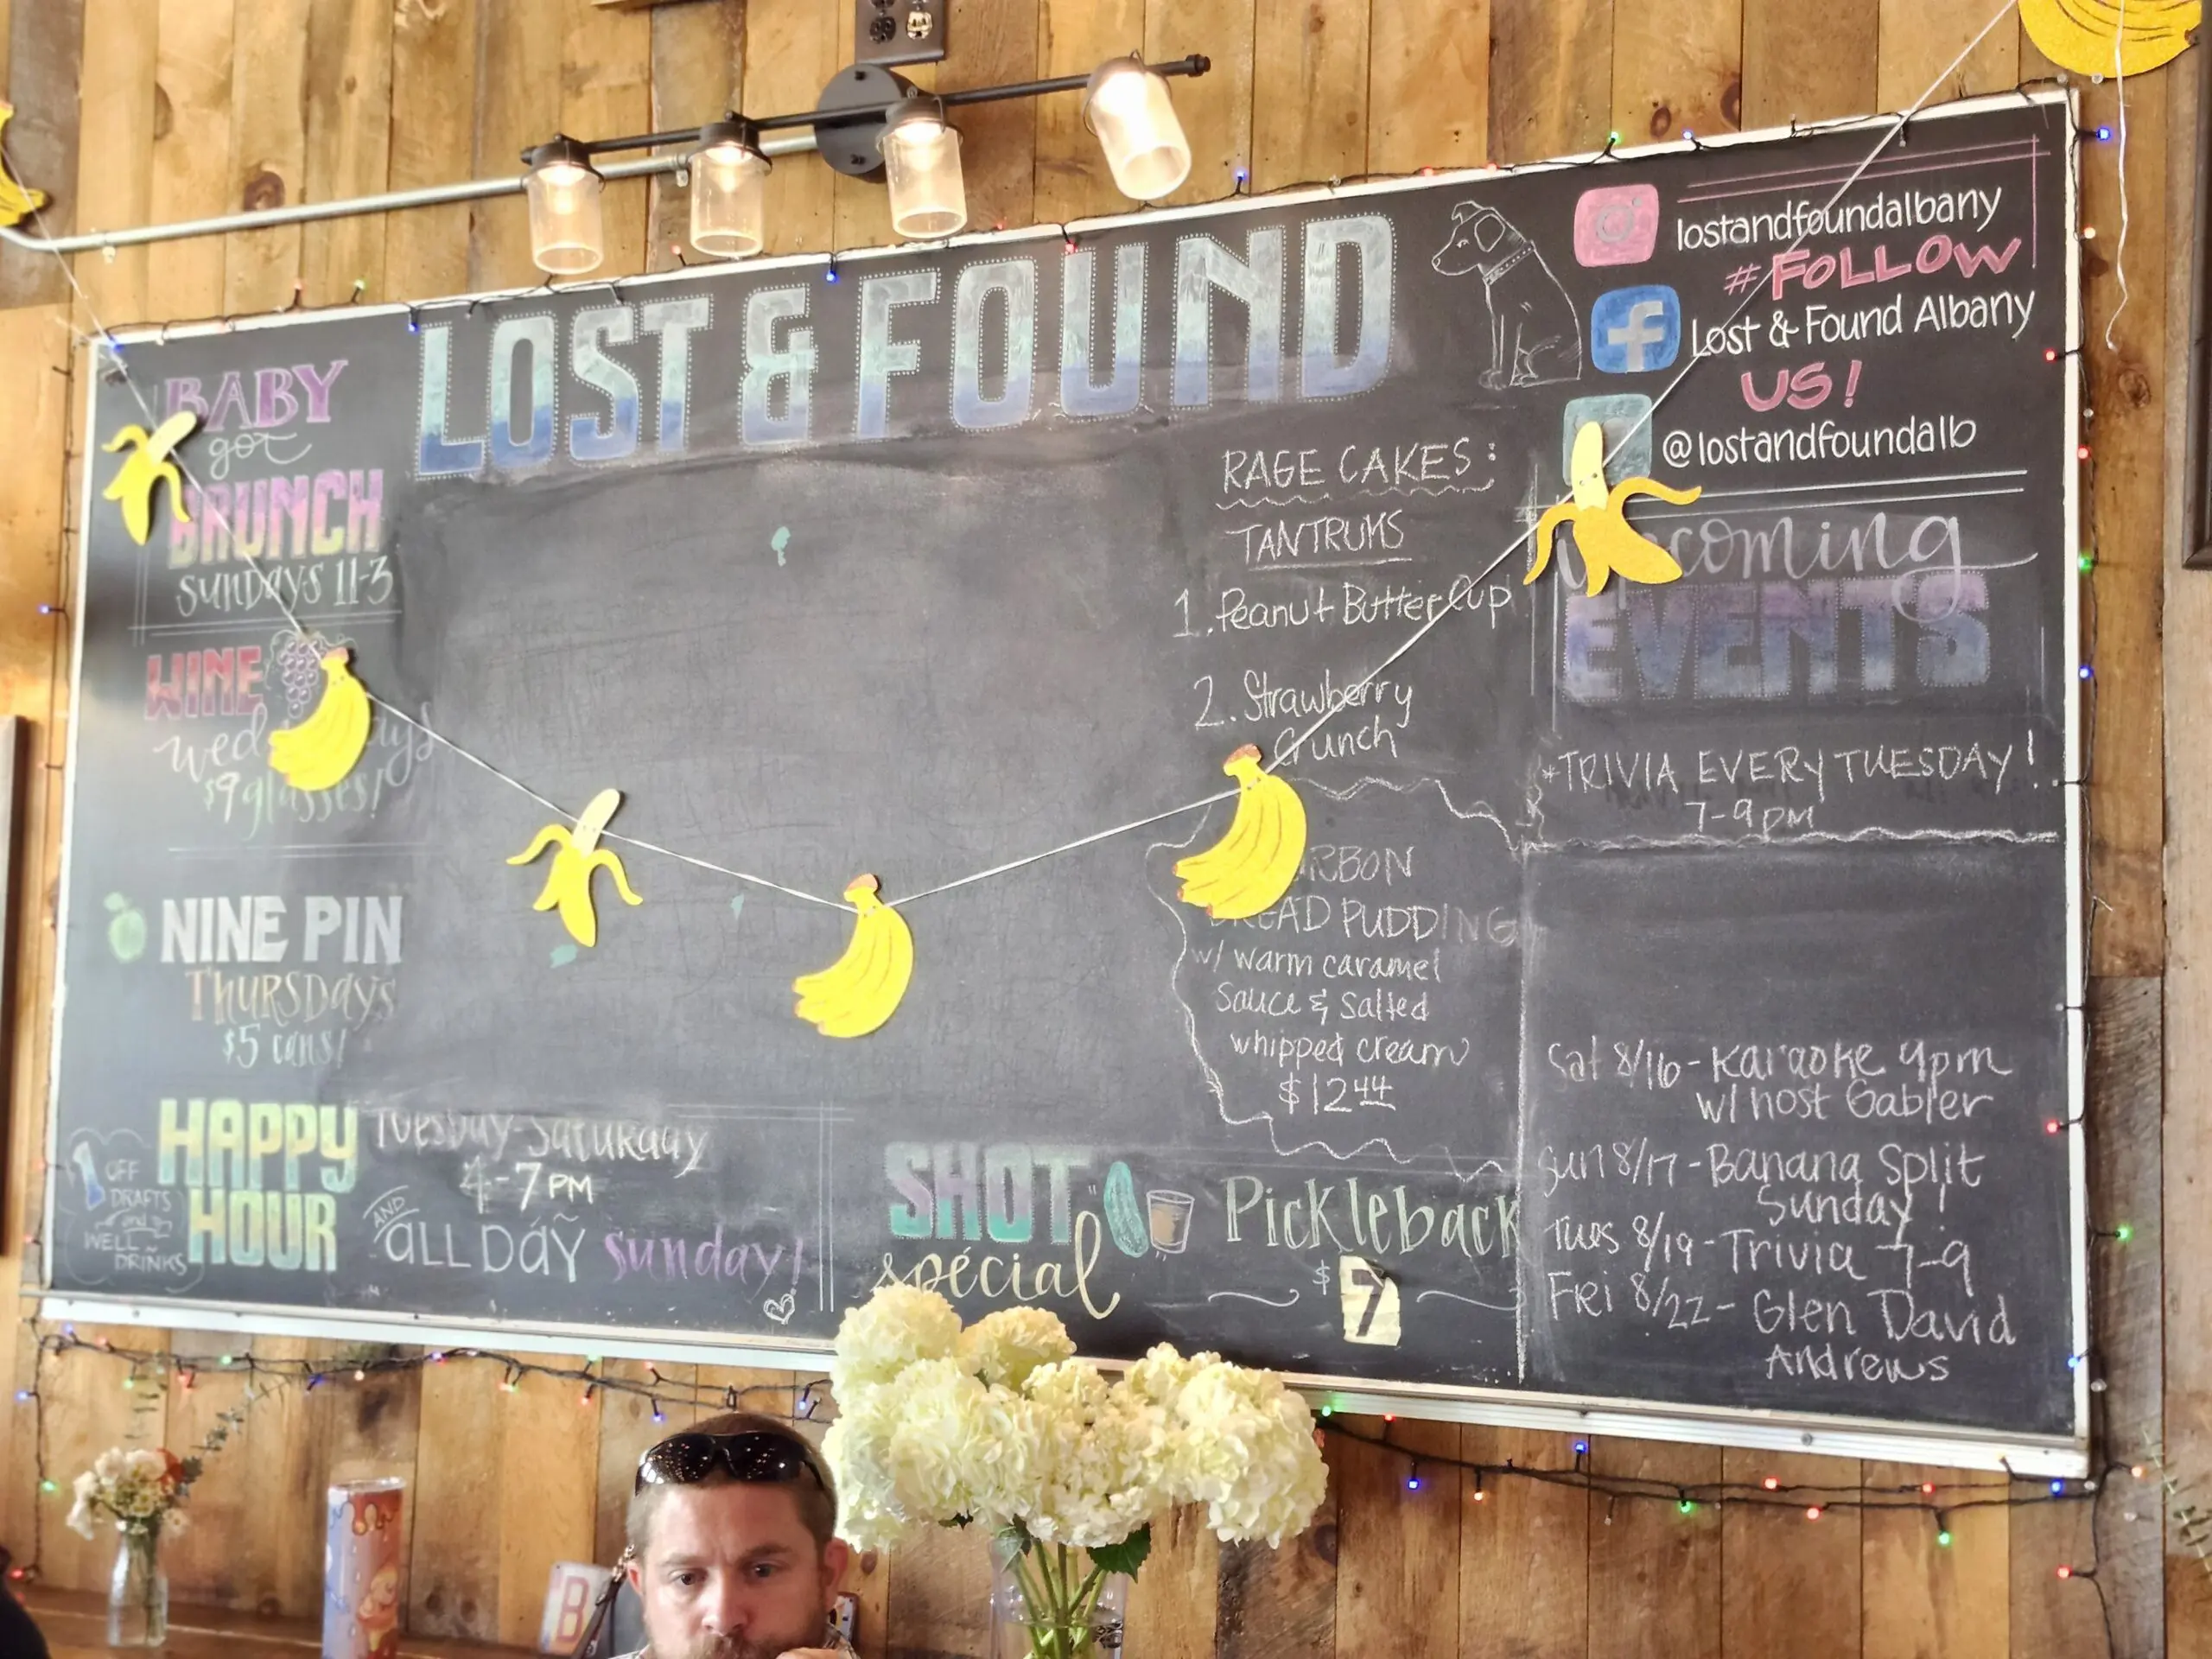 LOST & FOUND
BABY
got
BRUNCH
SUNDAYS 11-3
WINE
$9 glasses!
NINE PIN
THURSDAYS
$5 cans!
HAPPY
HOUR
OFF
DRAFTS
and
WELL
DRINKS
Tuesday-Saturday
4-7PM
AND
ALL DAY sunday!
SHOT
spécial
Pickleback
$7
RAGE CAKES:
TANTRUMS
1. Peanut Butter Cup
2. Strawberry
Crunch
PUDDING
w/ warm caramel
sauce & salted
whipped cream
$12.44
lostandfoundalbany
#FOLLOW
Lost & Found Albany
US!
@lostandfoundalb
EVENTS
*TRIVIA EVERY TUESDAY!
7-9PM
Sat 8/16-Karaoke 9pm
w/ host Gabler
Sun 8/17-Banana Split
Sunday!
Tues 8/19-Trivia 7-9
Fri 8/22-Glen David
Andrews
B